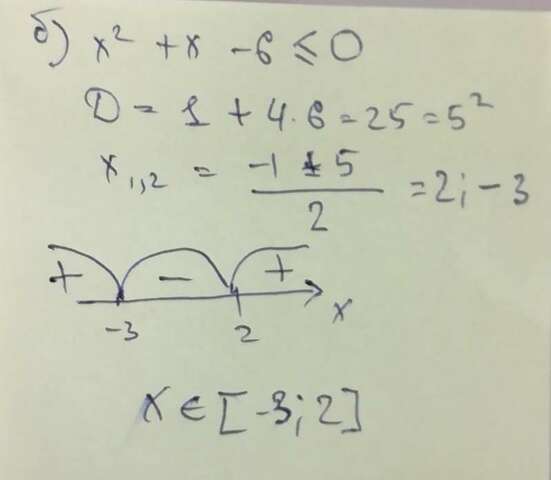 б) x² + x - 6 ≤ 0
D = 1 + 4·6 = 25 = 5²
x₁,₂ = (-1 ± 5)/2 = 2; -3
+ - +
-3 2 x
x ∈ [-3; 2]